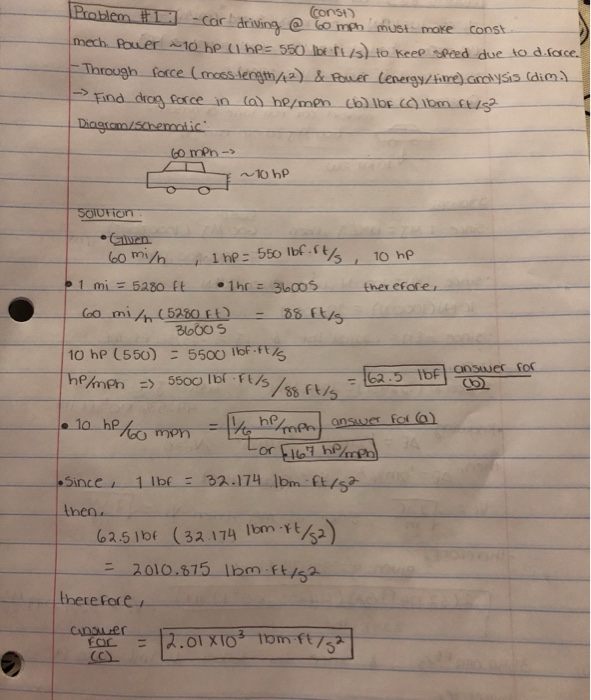 Problem #1: - car driving @ (const) 60 mph must make const
mech. Power ~10 hp (1 hp = 550 lbf ft/s) to keep speed due to d.force.
- Through force (mass·length/t^2) & Power (energy/time) analysis (dim.)
→ Find drag force in (a) hp/mph (b) lbf (c) lbm ft/s²
Diagram/schematic:
60 mph →
~10 hp
Solution:
• Given
60 mi/h , 1 hp = 550 lbf·ft/s , 10 hp
• 1 mi = 5280 ft • 1hr = 3600s therefore,
60 mi/h (5280 ft) / 3600 s = 88 ft/s
10 hp (550) = 5500 lbf·ft/s
hp/mph => 5500 lbf·ft/s / 88 ft/s = 62.5 lbf answer for (b)
• 10 hp/60 mph = 1/6 hp/mph answer for (a)
or .167 hp/mph
• Since, 1 lbf = 32.174 lbm·ft/s²
then,
62.5 lbf (32.174 lbm·ft/s²)
= 2010.875 lbm·ft/s²
therefore,
answer for (c) = 2.01 x10³ lbm·ft/s²